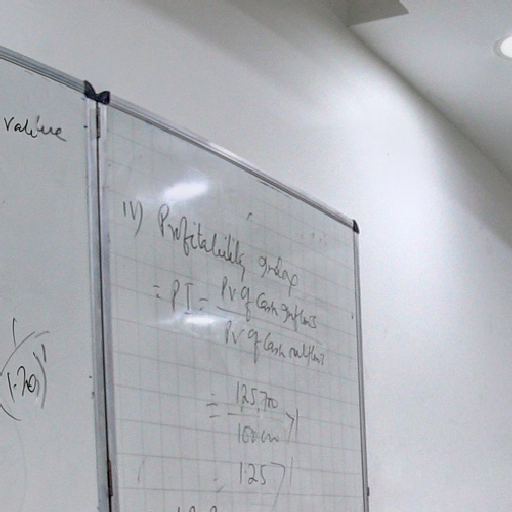 value
(1.20)
IV) Profitability Index
= PI = PV of Cash Inflows
PV of Cash outflows
= 125,700 > 1
= 1.25 > 1